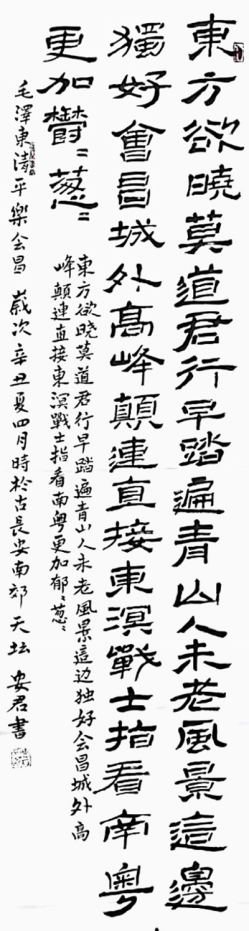 東方欲曉莫道君行早踏遍青山人未老風景這邊
獨好會昌城外高峰顛連直接東溟戰士指看南粵
更加鬱〻蔥〻
東方欲晓莫道君行早踏遍青山人未老風景這边独好会昌城外高
峰顛連直接東溟戰士指看南粤更加郁〻葱〻
毛澤東清平樂会昌 歲次辛丑夏四月時於古長安南郊天坛 安君書